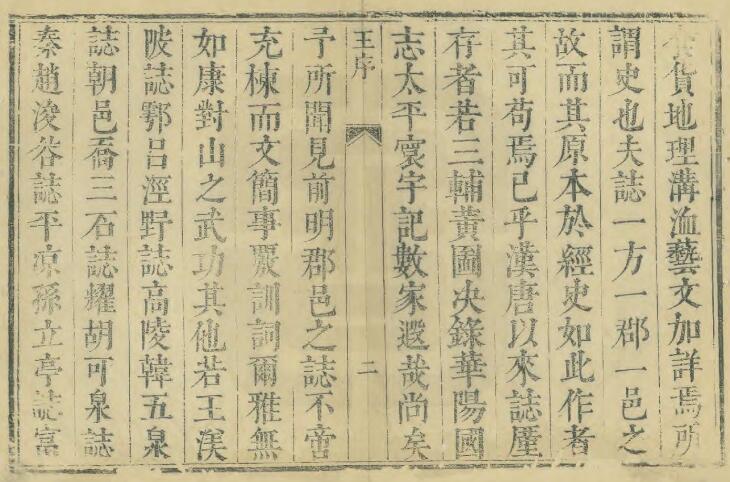 貨地理溝洫藝文加詳焉所
謂史也夫誌一方一郡一邑之
故而其原本於經史如此作者
其可苟焉已乎漢唐以來誌厪
存者若三輔黃圖决錄華陽國
志太平寰宇記數家遐哉尚矣
王序
二
予所聞見前明郡邑之誌不啻
充棟而文簡事嚴訓詞爾雅無
如康對山之武功其他若王渼
陂誌鄠呂涇野誌高陵韓五泉
誌朝邑喬三石誌耀胡可泉誌
秦趙浚谷誌平凉孫立亭誌富